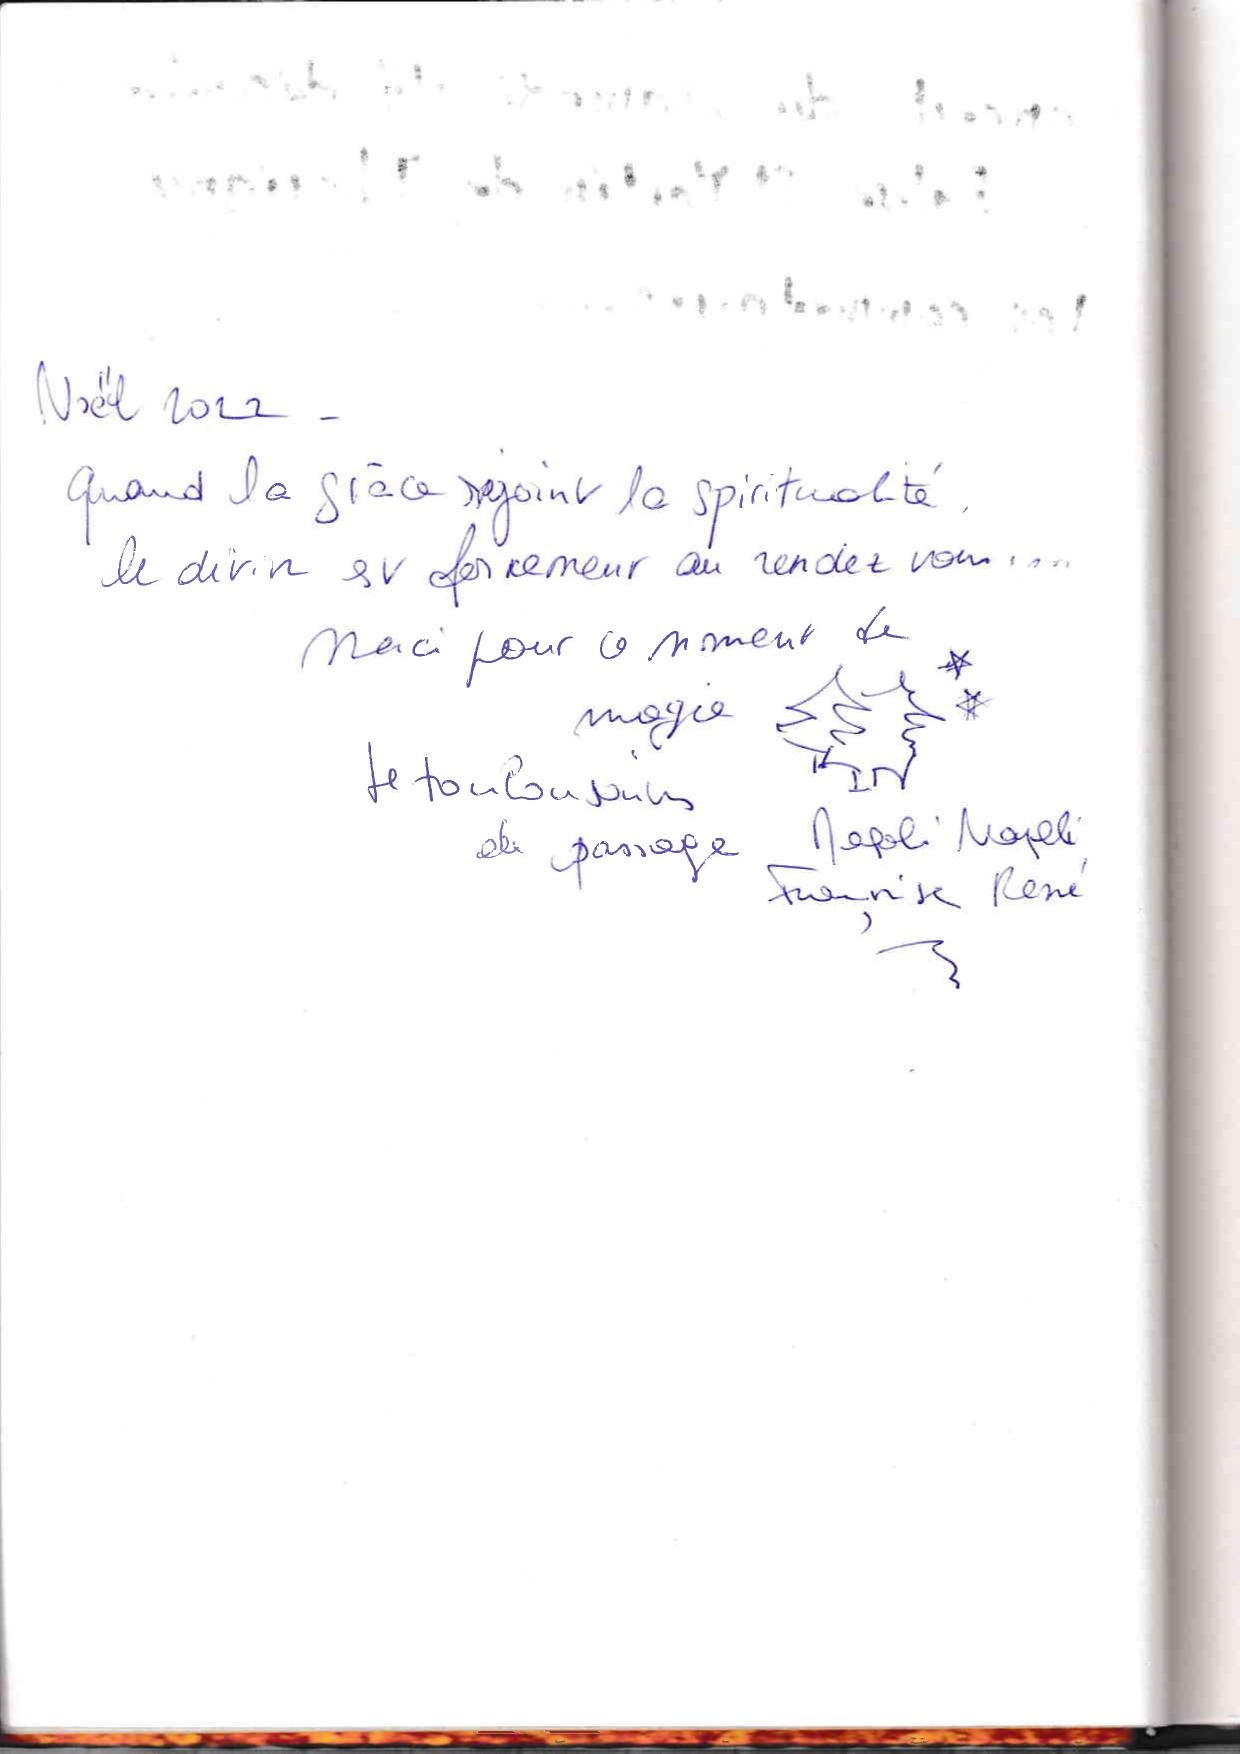 Noël 2022 -
Quand la grâce rejoint la spiritualité,
le divin est forcement au rendez vous....
Merci pour ce moment de
magie
toulousains
de passage
Françoise René